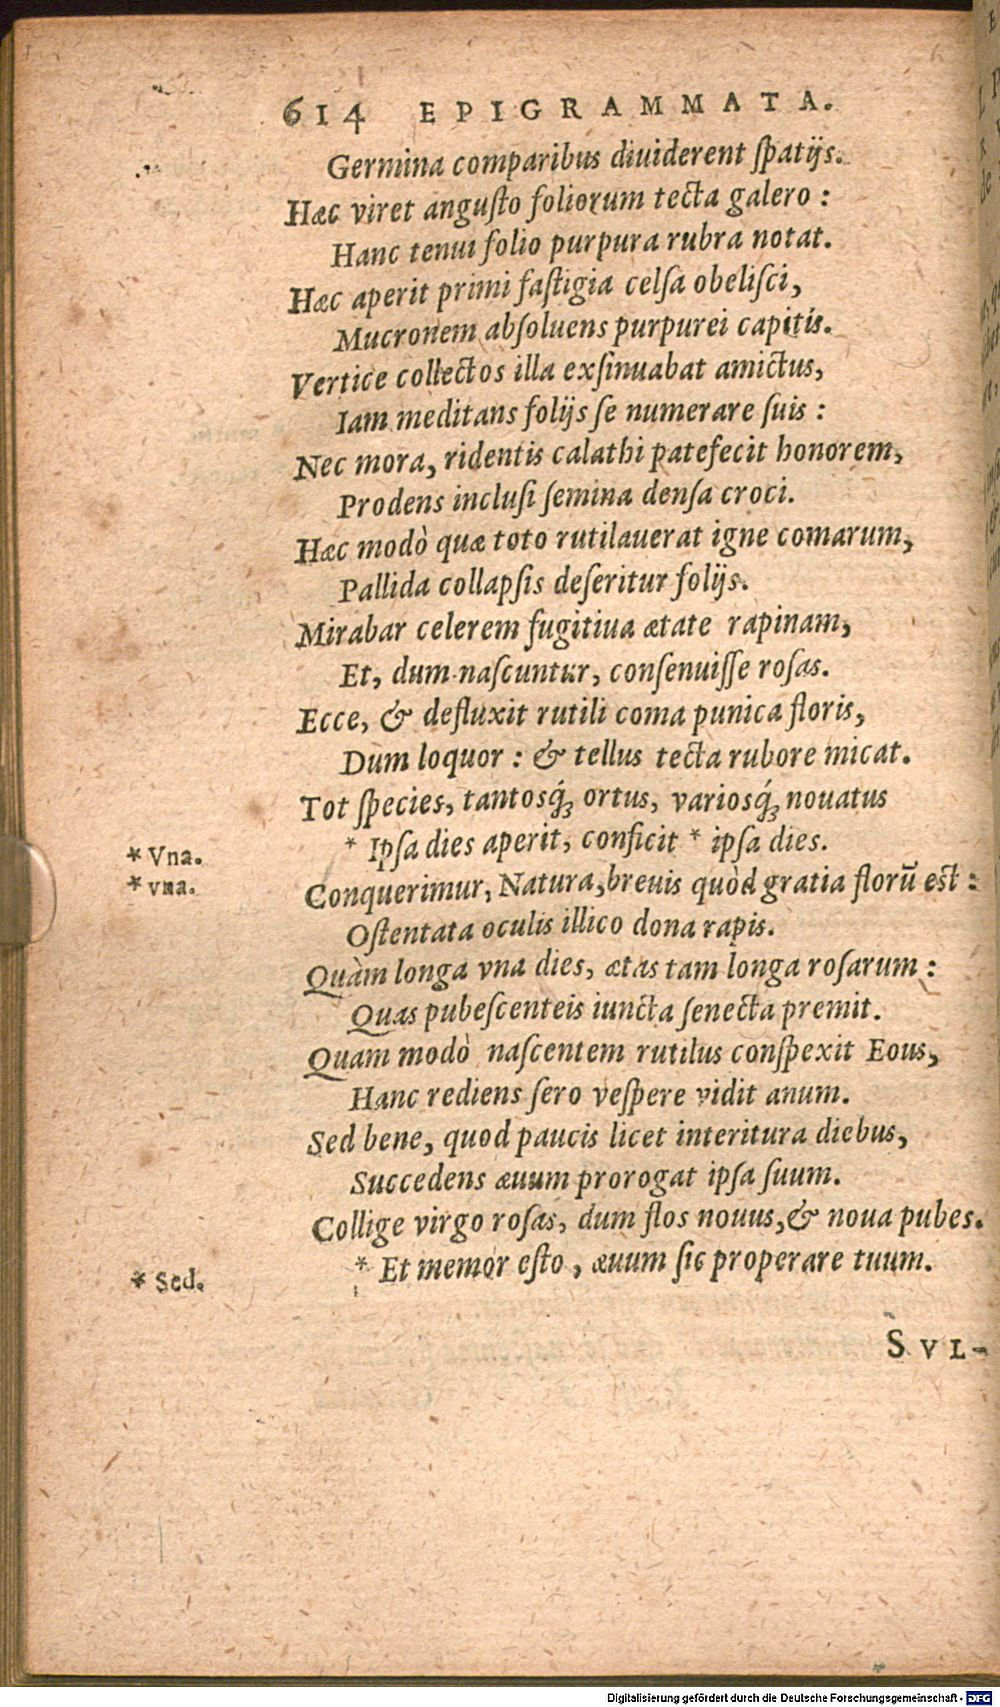 614 EPIGRAMMATA.
Germina comparibus diuiderent ſpatijs.
Hæc viret anguſto foliorum tecta galero :
Hanc tenui folio purpura rubra notat.
Hæc aperit primi faſtigia celſa obeliſci,
Mucronem abſoluens purpurei capitis.
Vertice collectos illa exſinuabat amictus,
Iam meditans folijs ſe numerare ſuis :
Nec mora, ridentis calathi patefecit honorem,
Prodens incluſi ſemina denſa croci.
Hæc modò quæ toto rutilauerat igne comarum,
Pallida collapſis deſeritur folijs.
Mirabar celerem fugitiua ætate rapinam,
Et, dum naſcuntur, conſenuiſſe roſas.
Ecce, & defluxit rutili coma punica floris,
Dum loquor : & tellus tecta rubore micat.
Tot ſpecies, tantosq́; ortus, variosq́; nouatus
* Ipſa dies aperit, conficit * ipſa dies.
* Vna.
* vna.
Conquerimur, Natura, breuis quòd gratia florũ est :
Oſtentata oculis illico dona rapis.
Quàm longa vna dies, ætas tam longa roſarum :
Quas pubeſcenteis iuncta ſenecta premit.
Quam modò naſcentem rutilus conſpexit Eous,
Hanc rediens ſero veſpere vidit anum.
Sed bene, quod paucis licet interitura diebus,
Succedens æuum prorogat ipſa ſuum.
Collige virgo roſas, dum flos nouus, & noua pubes.
* Et memor eſto, æuum ſic properare tuum.
* Sed.
SVL-
Digitalisierung gefördert durch die Deutsche Forschungsgemeinschaft - DFG